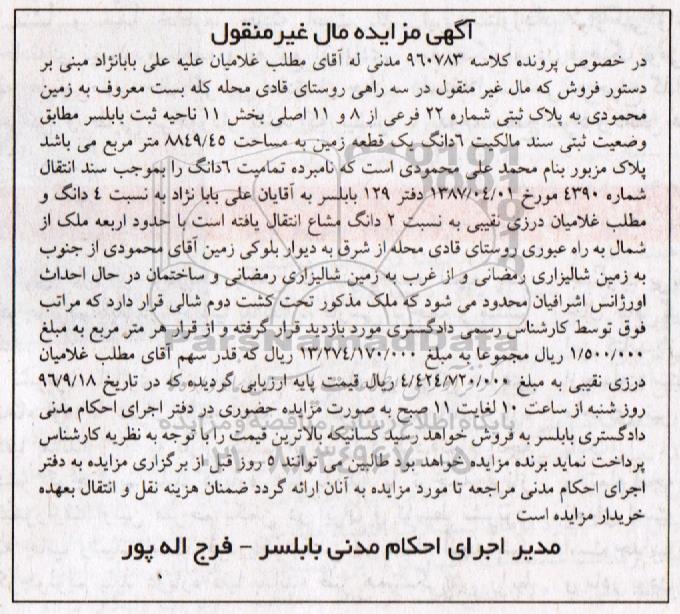 آگهی مزایده مال غیرمنقول
در خصوص پرونده کلاسه ۹۶۰۷۸۳ مدنی له آقای مطلب غلامیان علیه علی بابانژاد مبنی بر
دستور فروش که مال غیر منقول در سه راهی روستای قادی محله کله بست معروف به زمین
محمودی به پلاک ثبتی شماره ۲۲ فرعی از ۸ و ۱۱ اصلی بخش ۱۱ ناحیه ثبت بابلسر مطابق
وضعیت ثبتی سند مالکیت ۶دانگ یک قطعه زمین به مساحت ۸۸۴۹/۴۵ متر مربع می باشد
پلاک مزبور بنام محمد علی محمودی است که نامبرده تمامیت ۶دانگ را بموجب سند انتقال
شماره ۴۳۹۰ مورخ ۱۳۸۷/۰۴/۰۱ دفتر ۱۲۹ بابلسر به آقایان علی بابا نژاد به نسبت ۴ دانگ و
مطلب غلامیان درزی نقیبی به نسبت ۲ دانگ مشاع انتقال یافته است با حدود اربعه ملک از
شمال به راه عبوری روستای قادی محله از شرق به دیوار بلوکی زمین آقای محمودی از جنوب
به زمین شالیزاری رمضانی و از غرب به زمین شالیزاری رمضانی و ساختمان در حال احداث
اورژانس اشرافیان محدود می شود که ملک مذکور تحت کشت دوم شالی قرار دارد که مراتب
فوق توسط کارشناس رسمی دادگستری مورد بازدید قرار گرفته و از قرار هر متر مربع به مبلغ
۱/۵۰۰/۰۰۰ ریال مجموعا به مبلغ ۱۳/۲۷۴/۱۷۰/۰۰۰ ریال که قدر سهم آقای مطلب غلامیان
درزی نقیبی به مبلغ ۴/۴۲۴/۷۲۰/۰۰۰ ریال قیمت پایه ارزیابی گردیده که در تاریخ ۹۶/۹/۱۸
روز شنبه از ساعت ۱۰ لغایت ۱۱ صبح به صورت مزایده حضوری در دفتر اجرای احکام مدنی
دادگستری بابلسر به فروش خواهد رسید کسانیکه بالاترین قیمت را با توجه به نظریه کارشناس
پرداخت نماید برنده مزایده خواهد بود طالبین می توانید ۵ روز قبل از برگزاری مزایده به دفتر
اجرای احکام مدنی مراجعه تا مورد مزایده به آنان ارائه گردد ضمنان هزینه نقل و انتقال بعهده
خریدار مزایده است
مدیر اجرای احکام مدنی بابلسر – فرج اله پور
ParsNamadData
پایگاه اطلاع رسانی مناقصه و مزایده